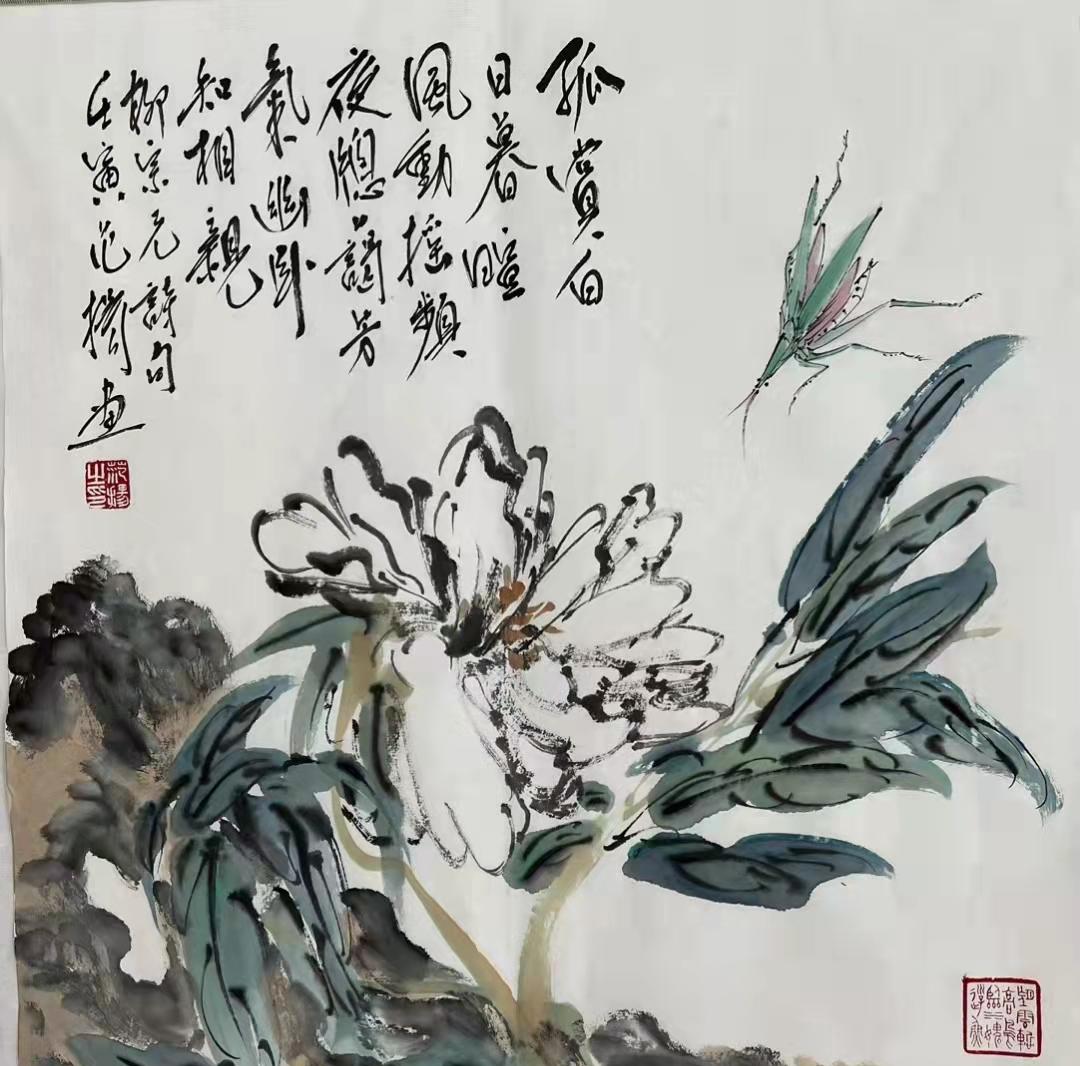 孤賞白
日暮暄
風動搖頻
夜牕藹芳
氣幽臥
知相親
柳宗元詩句
壬寅范畫
之印